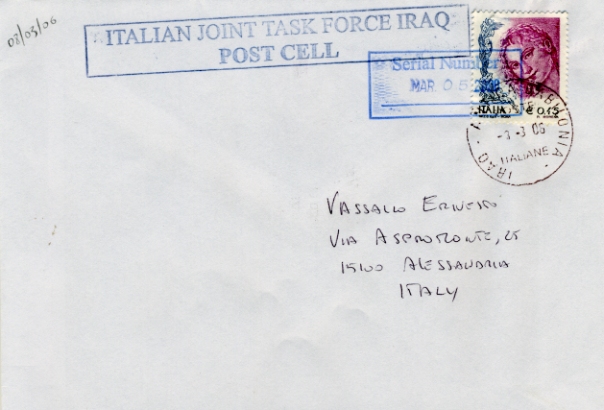 08/03/06
ITALIAN JOINT TASK FORCE IRAQ
POST CELL
Serial Number
MAR. 05
ITALIA € 0,45
IRAQ
-3-3 06
ITALIANE
VASSALLO ERNESTO
VIA ASPROMONTE, 25
15100 ALESSANDRIA
ITALY